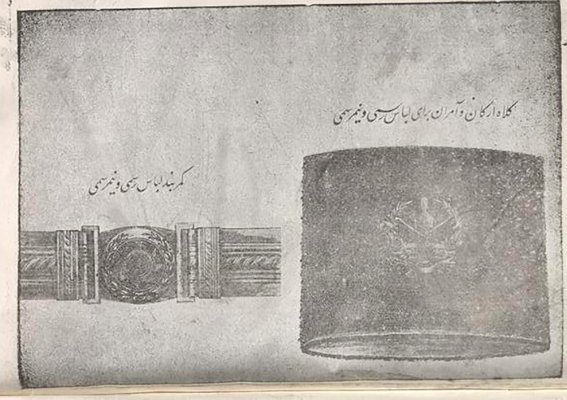 کلاه ارکان و آمران برای لباس رسمی و نیم رسمی
کمربند لباس رسمی و نیم رسمی